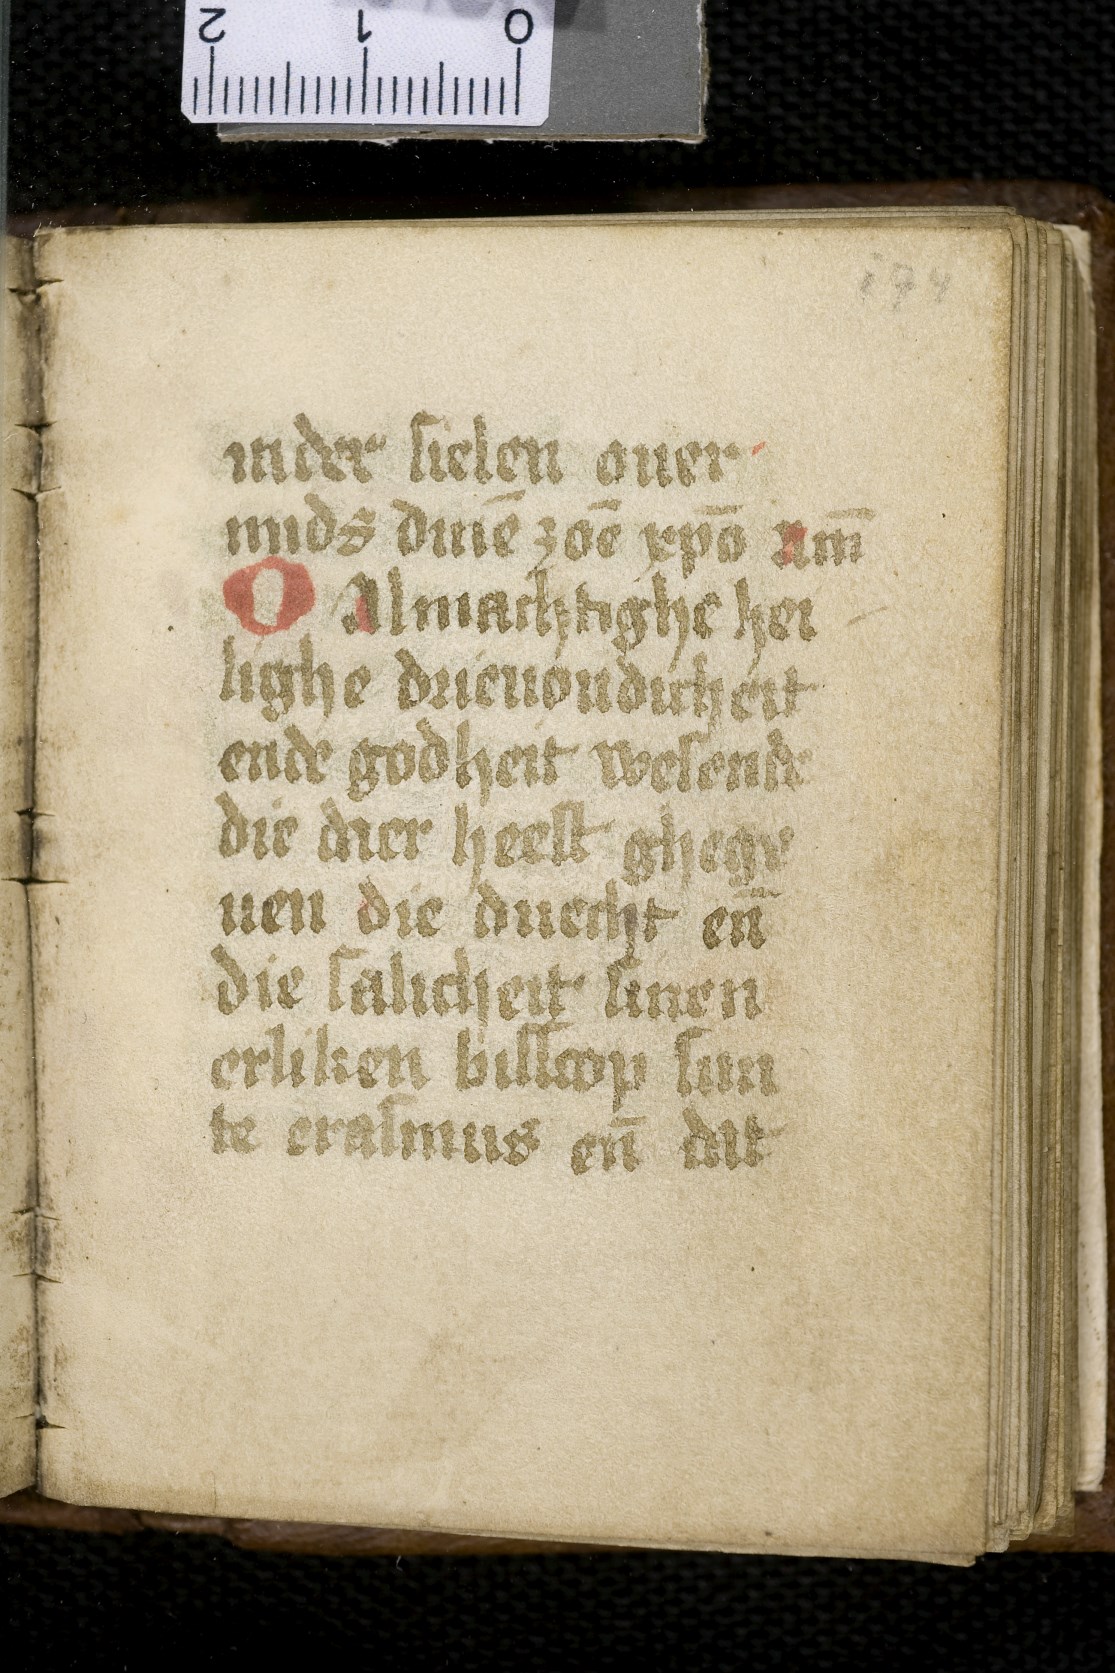 2 1 0
174
in der sielen ouer
mids dinē zoē xpō Am̄
O Almachtighe hei
lighe drieuoudicheit
ende godheit wesende
die daer heest ghege
uen die duecht en̄
die salicheit sinen
erliken bisscop sun
te erasmus en̄ dat